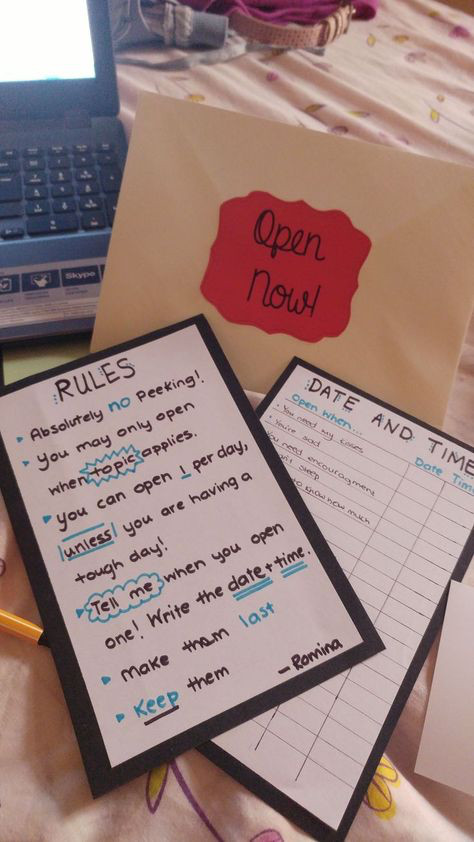 Skype
Open
Now!
RULES
Absolutely no Peeking!
You may only open
when topic applies.
you can open 1 per day,
unless you are having a
tough day!
Tell me when you open
one! Write the date + time.
make them last
Keep them
- Romina
DATE AND TIME
Open when... Date Time
You need my kisses
You're sad
You need encouragment
sleep
to know how much